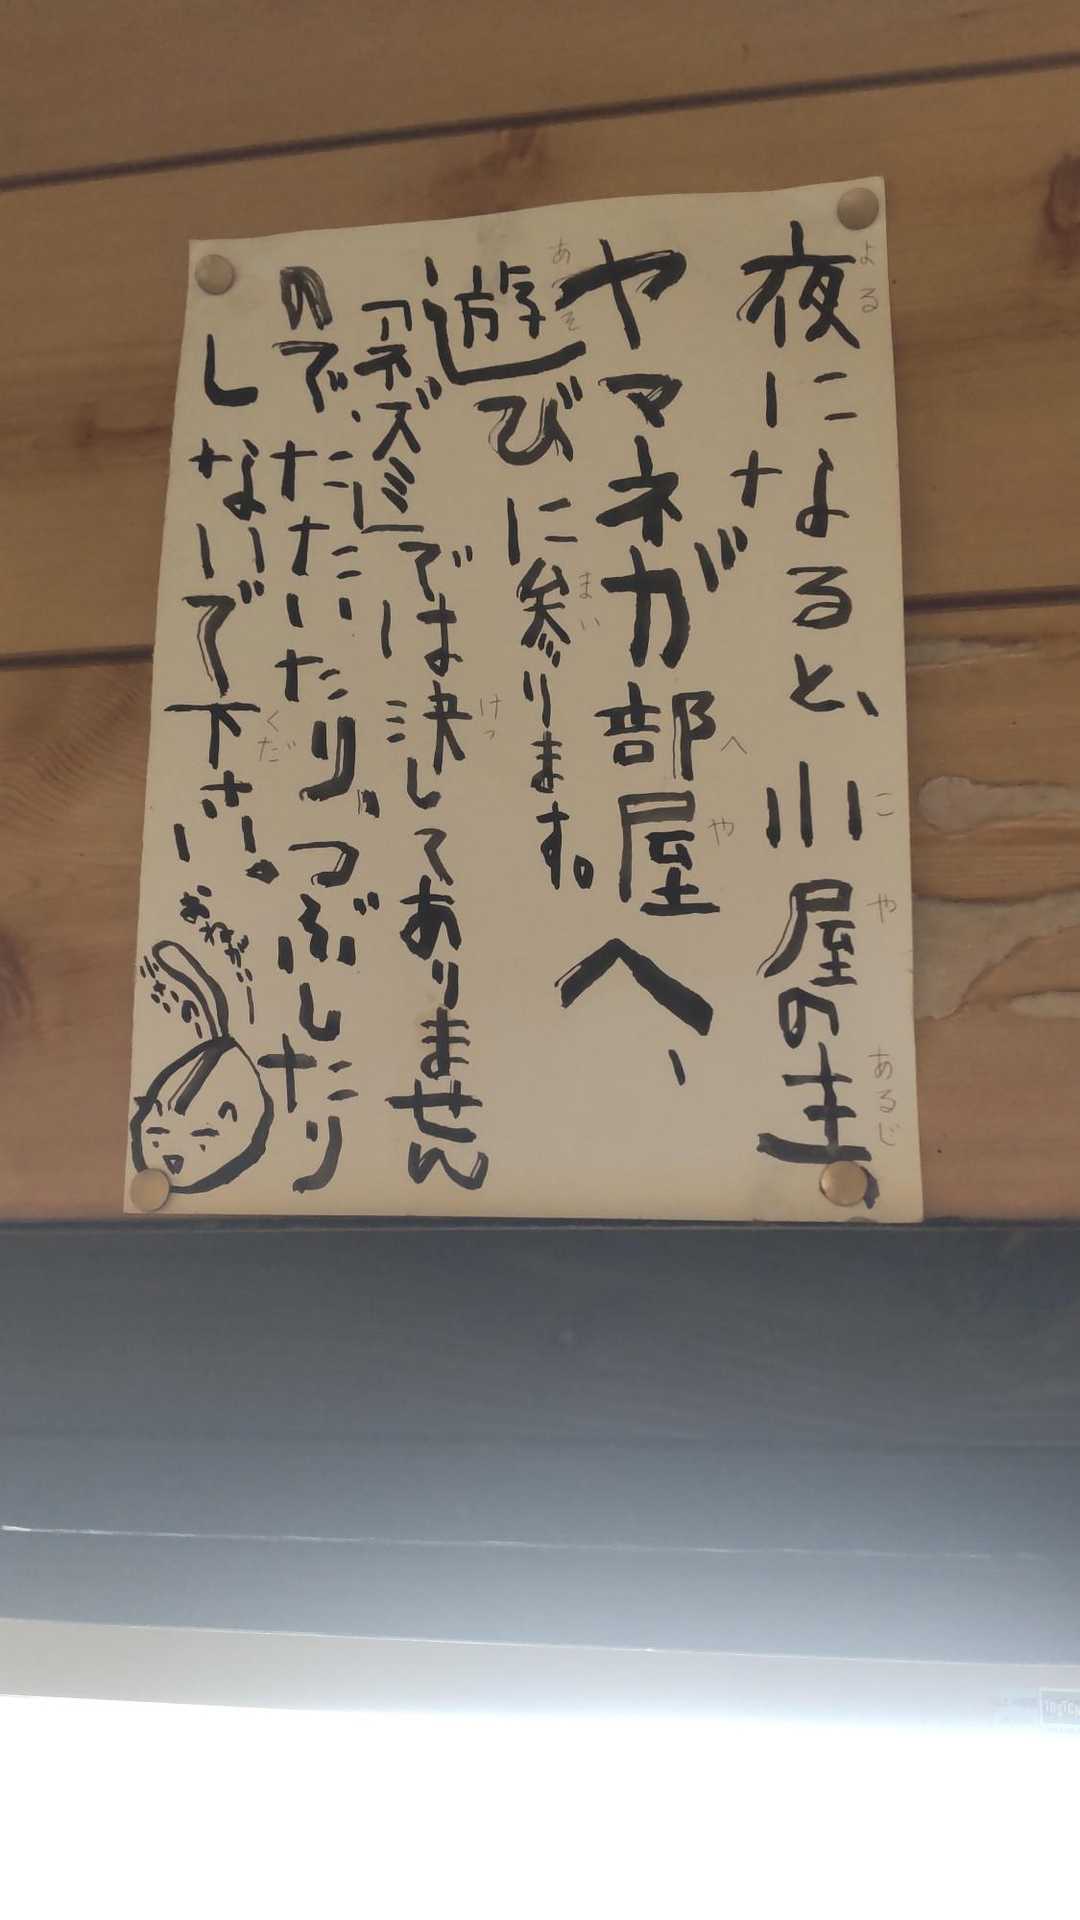 夜になると、小屋の主、
ヤマネが部屋へ、
遊びに参ります。
「ネズミ」では決してありません
のでたたいたり、つぶしたり
しないで下さい。
おねがい
よる
こや
あるじ
へや
あそ
まい
けっ
くだ